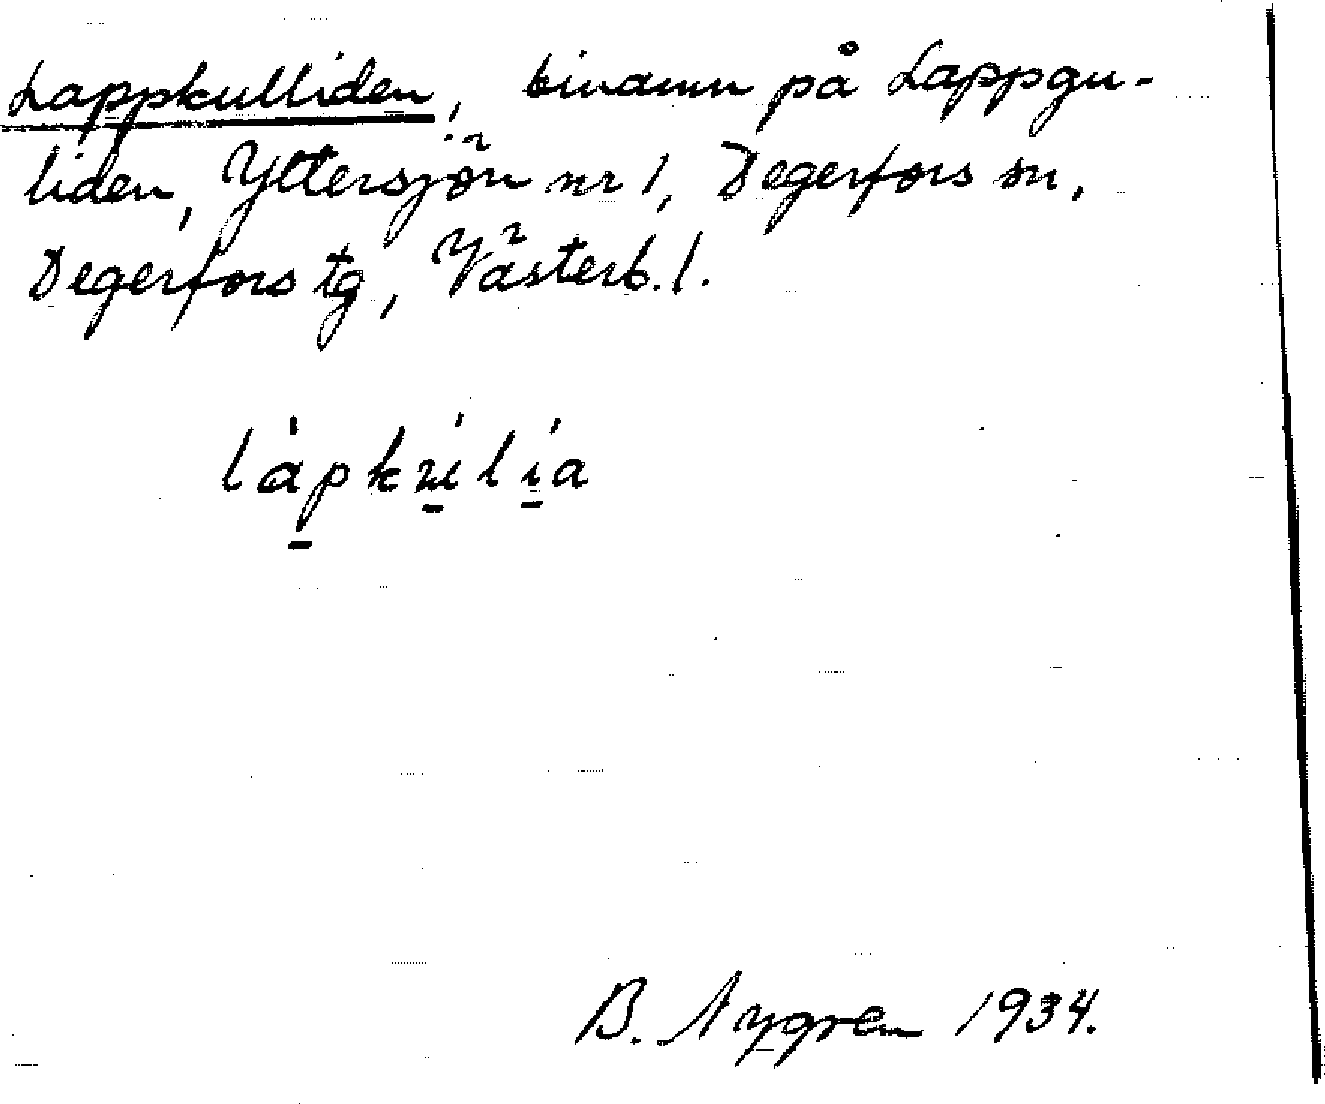 Lappkulliden, binamn på Lappgu-
liden, Yttersjön nr 1, Degerfors sn,
Degerfors tg, Västerb. l.
làpkúlía
B. Nygren 1934.